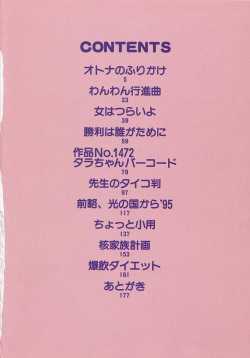 CONTENTS
オトナのふりかけ
5
わんわん行進曲
23
女はつらいよ
39
勝利は誰がために
59
作品No.1472
タラちゃんバーコード
79
先生のタイコ判
97
前略、光の国から'95
117
ちょっと小用
137
核家族計画
153
爆飲ダイエット
161
あとがき
177